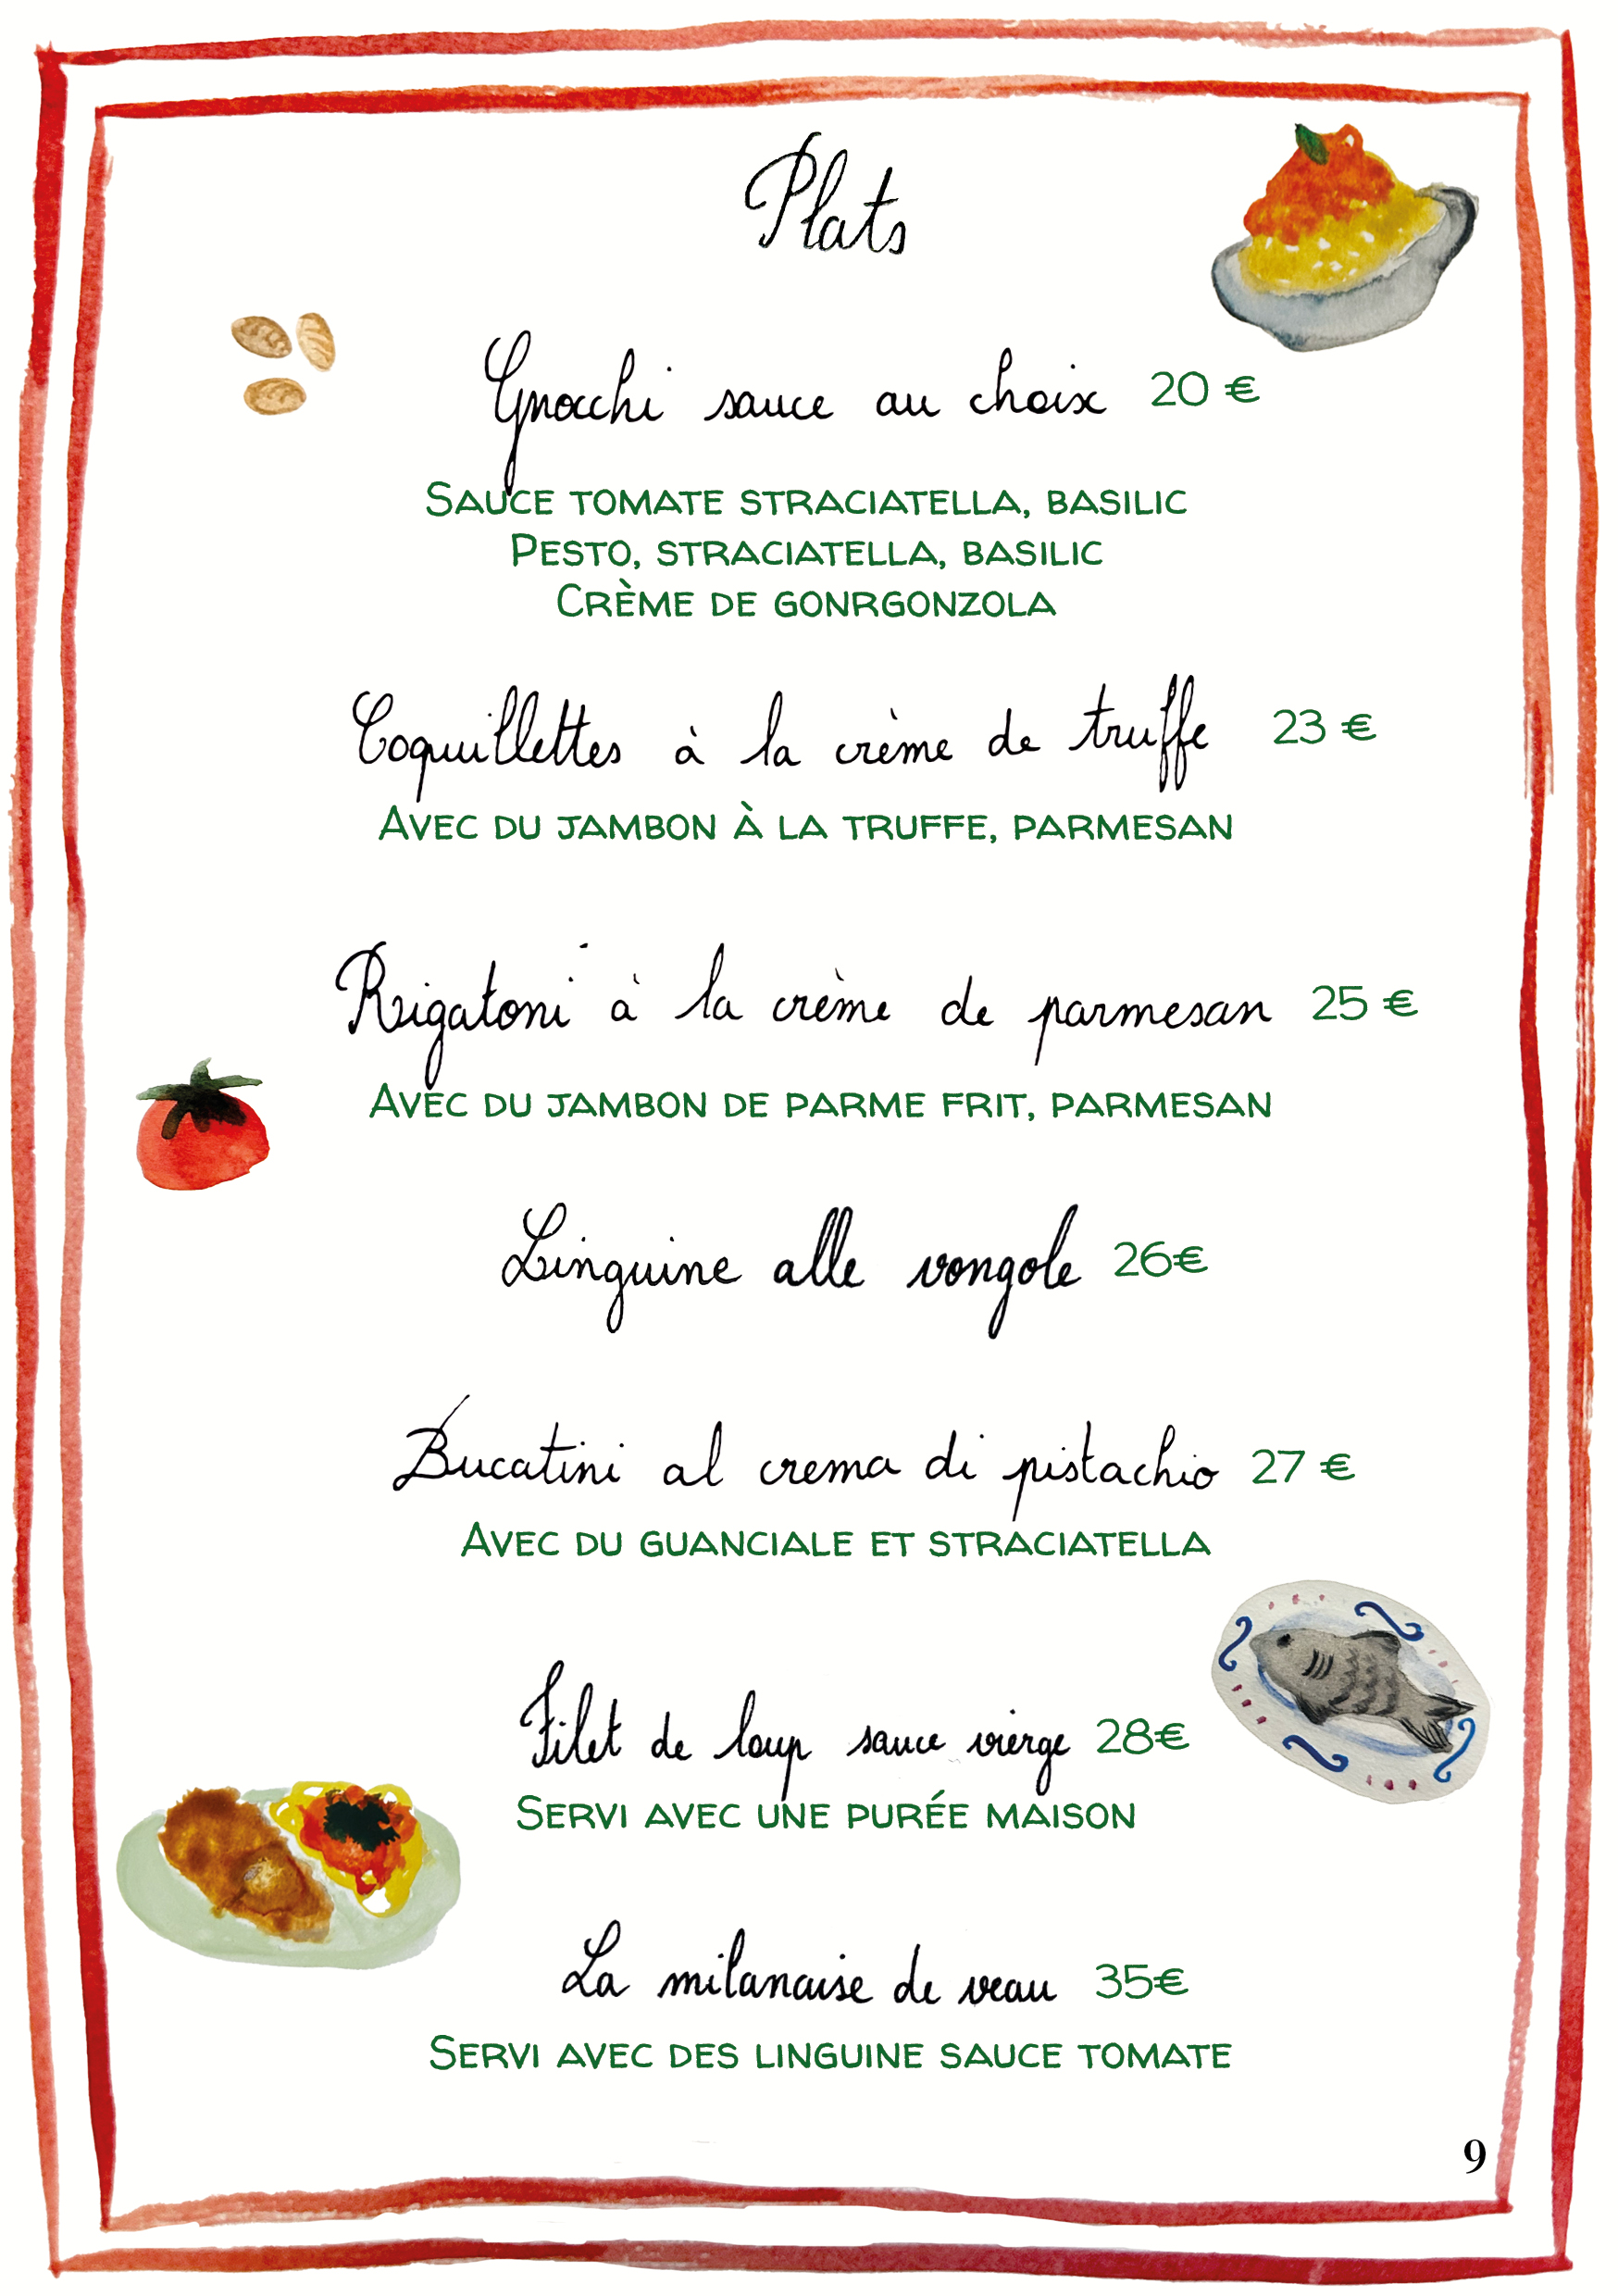 Plats
Gnocchi sauce au choix 20 €
Sauce tomate straciatella, basilic
Pesto, straciatella, basilic
Crème de gonrgonzola
Coquillettes à la crème de truffe 23 €
Avec du jambon à la truffe, parmesan
Rigatoni à la crème de parmesan 25 €
Avec du jambon de Parme frit, parmesan
Linguine alle vongole 26€
Bucatini al crema di pistachio 27 €
Avec du guanciale et straciatella
Filet de loup sauce vierge 28€
Servi avec une purée maison
La milanaise de veau 35€
Servi avec des linguine sauce tomate
9